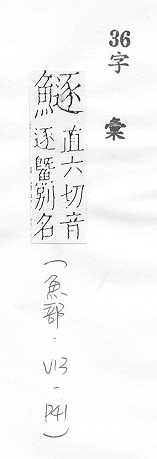 36字 彙
鱁 直六切音
逐鱀別名
(魚部・V13-P41)